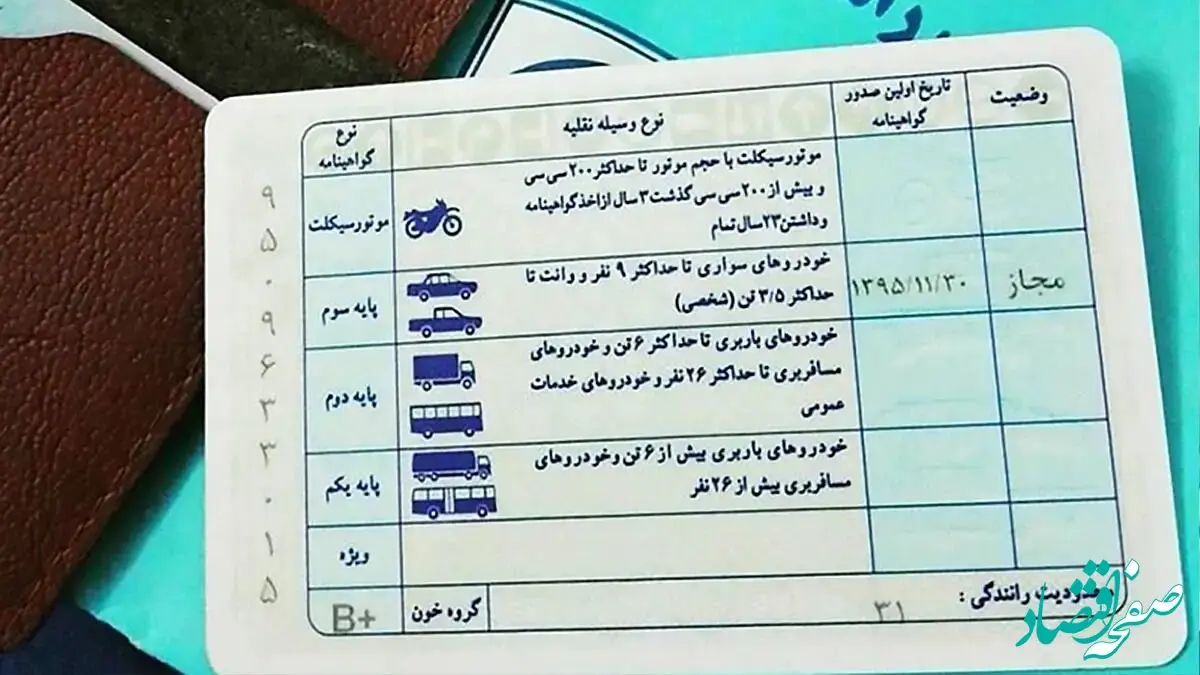 نوع گواهینامه
نوع وسیله نقلیه
تاریخ اولین صدور گواهینامه
وضعیت
موتورسیکلت
موتورسیکلت با حجم موتور تا حداکثر ۲۰۰ سی سی
و بیش از ۲۰۰ سی سی گذشت ۳ سال از اخذ گواهینامه
و داشتن ۲۳ سال تمام
پایه سوم
خودروهای سواری تا حداکثر ۹ نفر و وانت تا
حداکثر ۳/۵ تن (شخصی)
۱۳۹۵/۱۱/۳۰
مجاز
پایه دوم
خودروهای باربری تا حداکثر ۶ تن و خودروهای
مسافربری تا حداکثر ۲۶ نفر و خودروهای خدمات
عمومی
پایه یکم
خودروهای باربری بیش از ۶ تن و خودروهای
مسافربری بیش از ۲۶ نفر
ویژه
محدودیت رانندگی :
۳۱
گروه خون
B+
۹
۵
۰
۹
۶
۳
۳
۰
۱
۵
صفحه اقتصاد